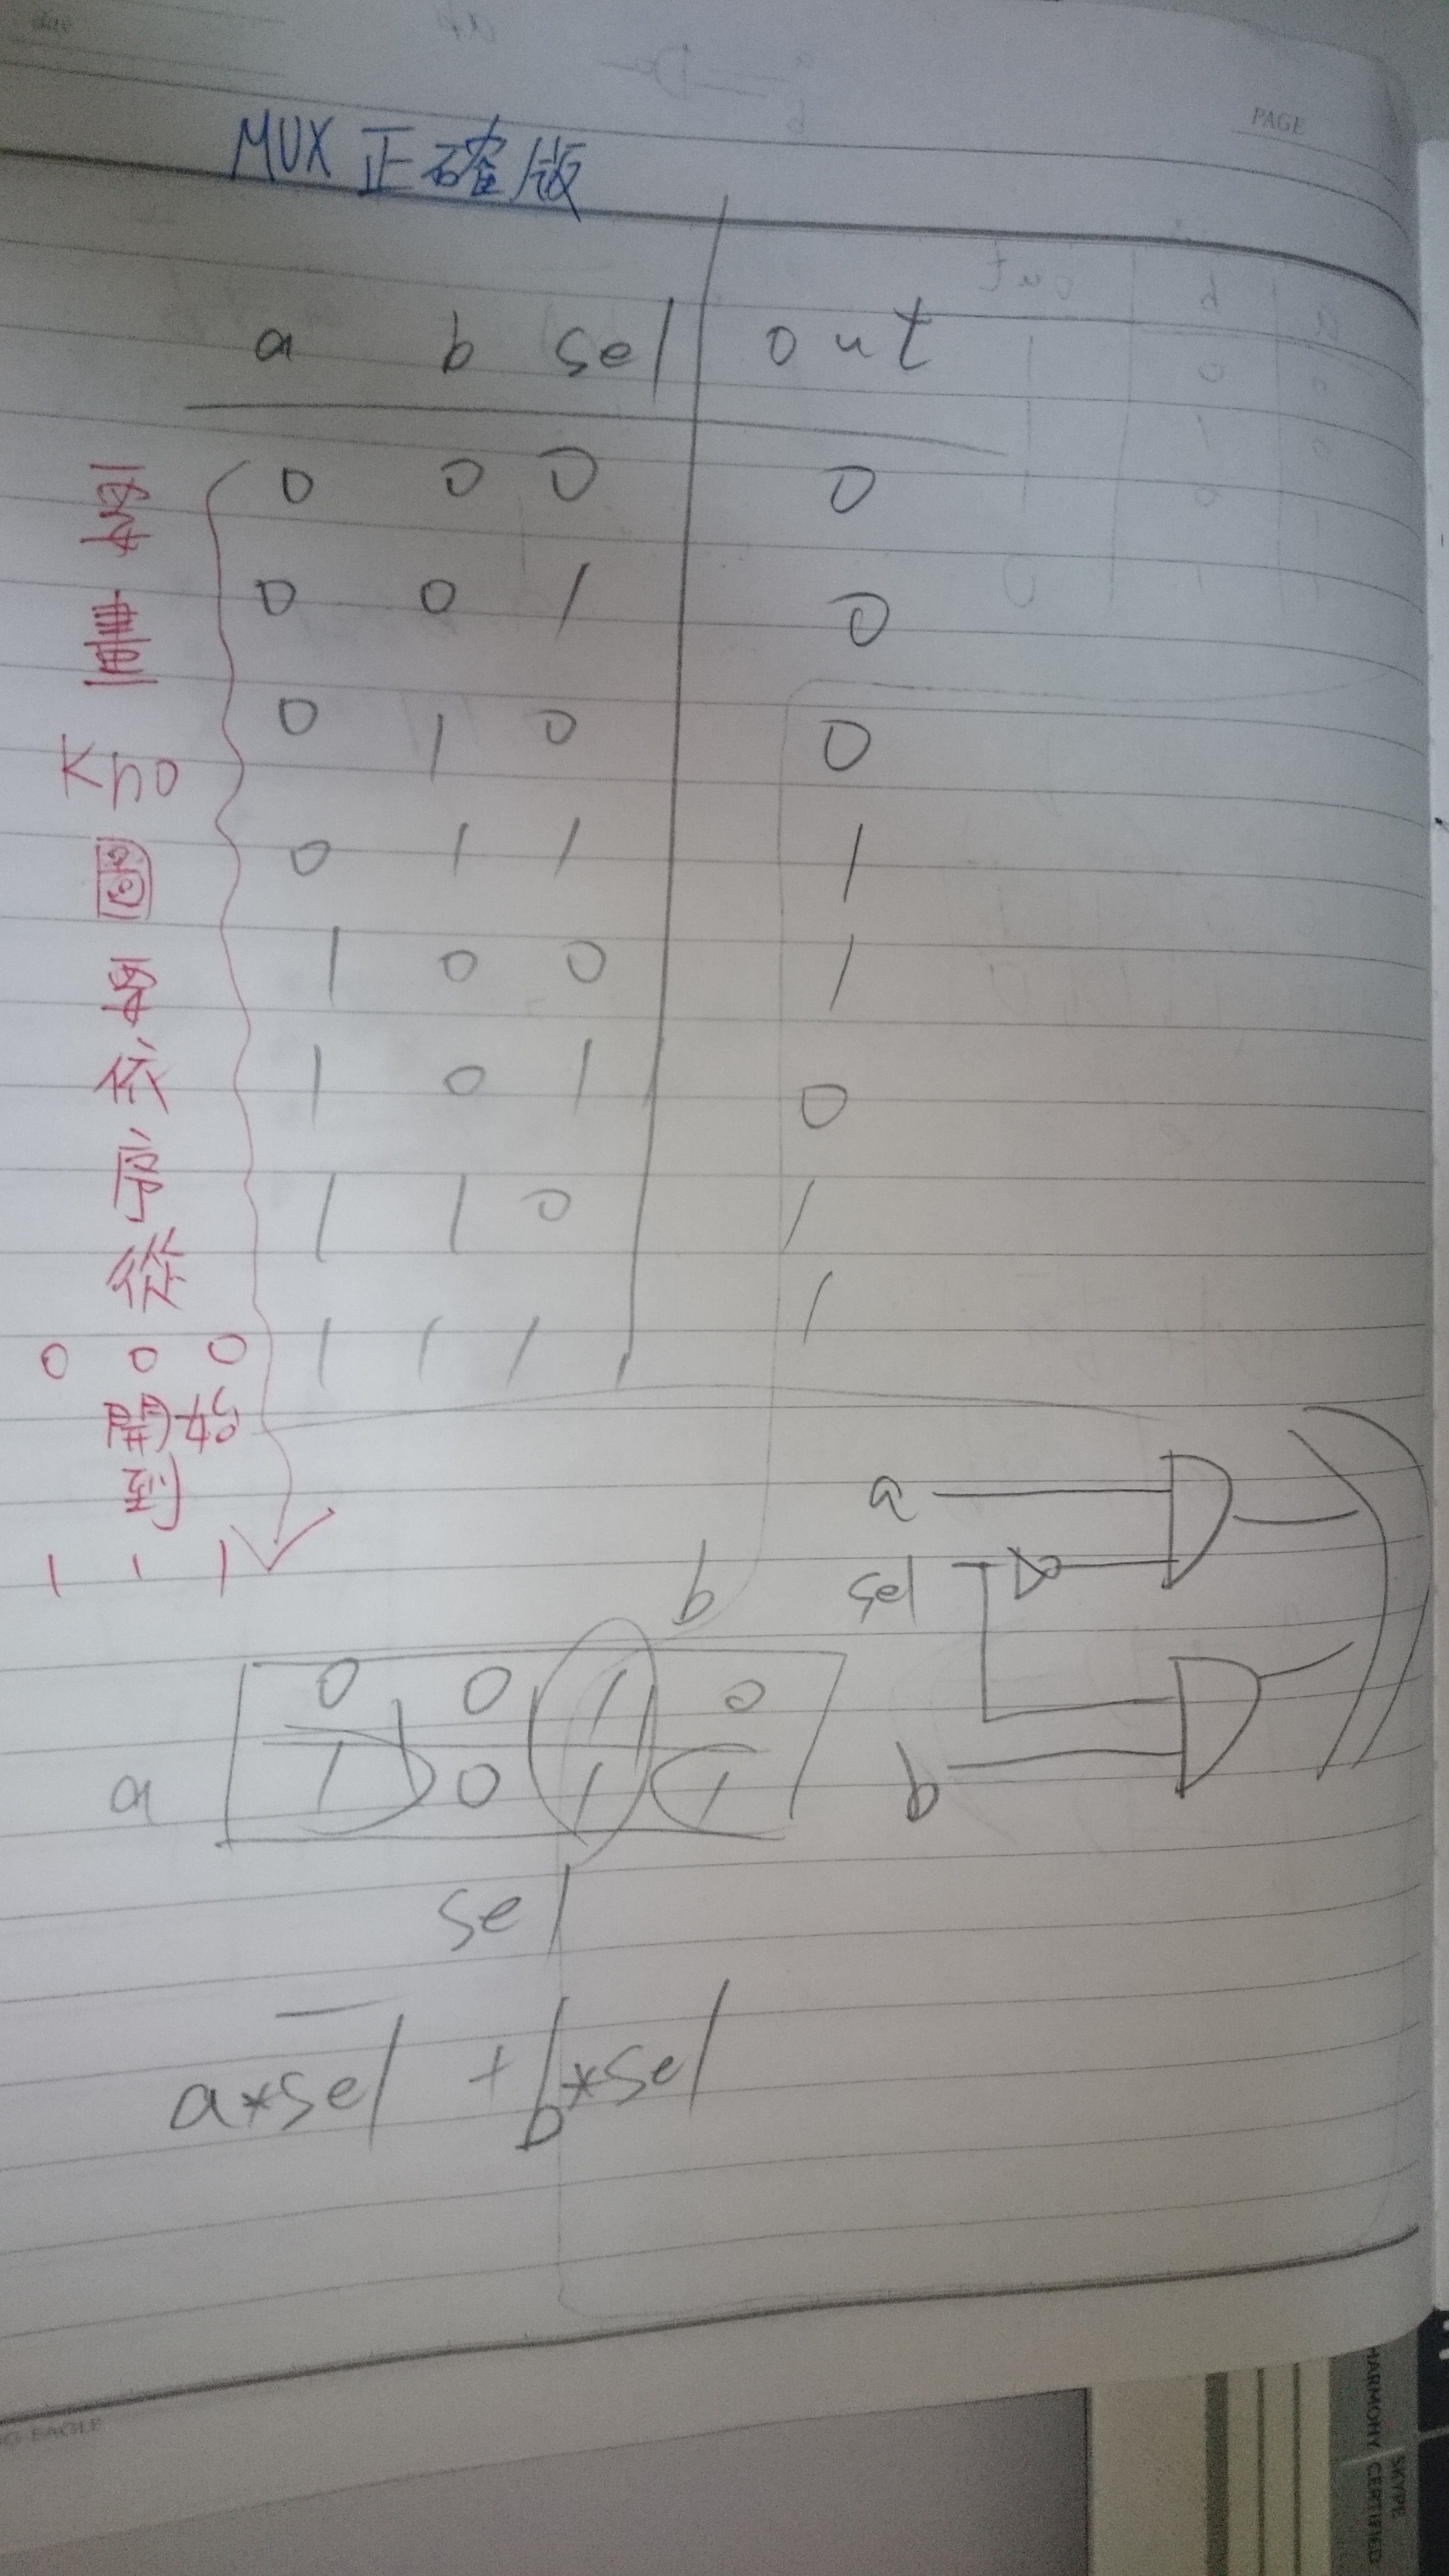 PAGE
MUX 正確版
a b sel out
0 0 0 0
0 0 1 0
0 1 0 0
0 1 1 1
1 0 0 1
1 0 1 0
1 1 0 1
1 1 1 1
要畫 Kno 圖要依序從
0 0 0
開始
到
1 1 1
a
sel
b
b
0 0 1 0
a 1 0 1 1
sel
a*s̅e̅l̅ + b*sel
EAGLE
HARMONY
SKYPE
CERTIFIED